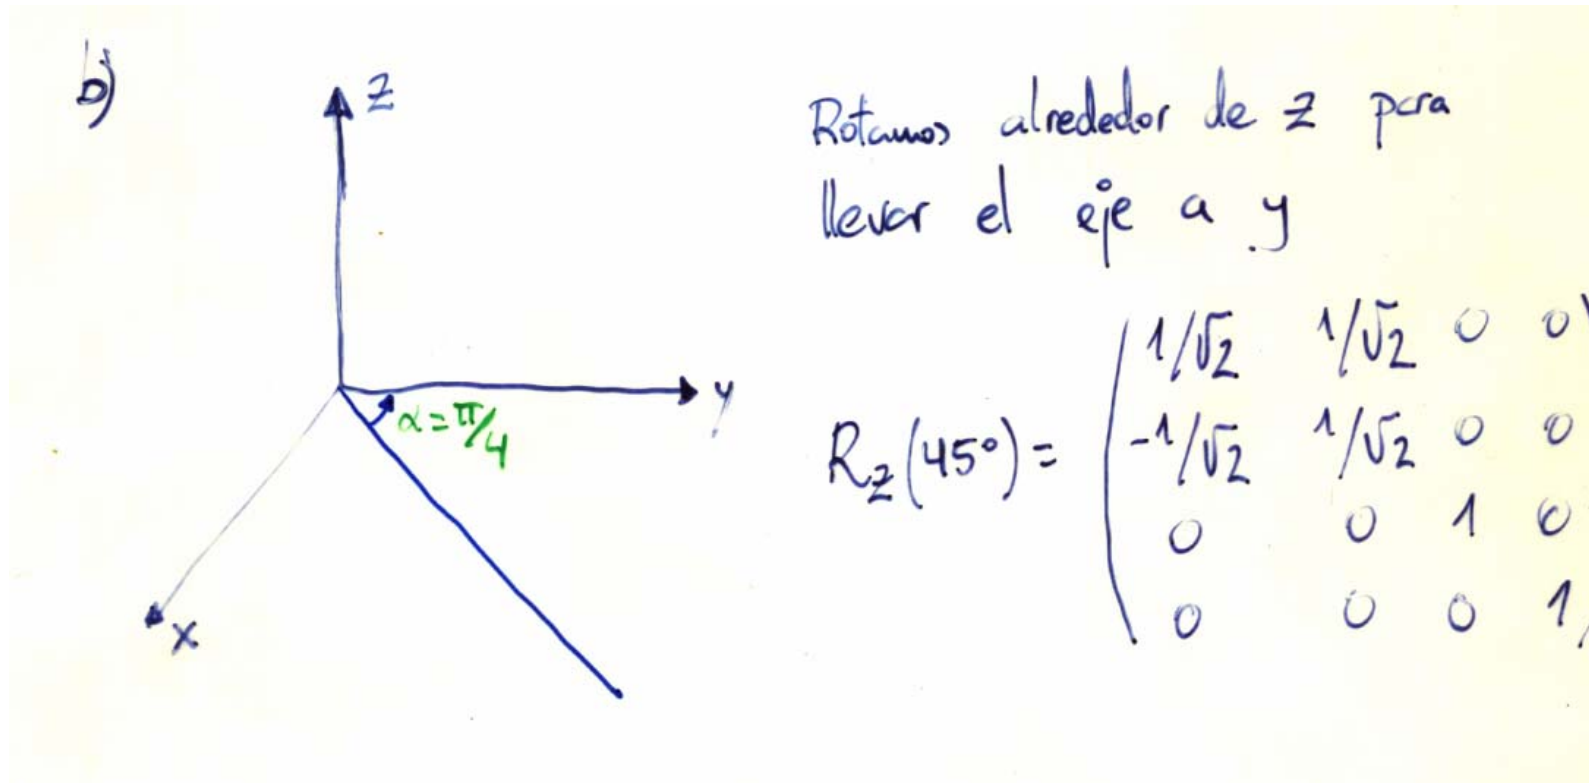 b)
z
Rotamos alrededor de z para
llevar el eje a y
y
α=π/4
x
R_z(45°)=
1/√2 1/√2 0 0
-1/√2 1/√2 0 0
0 0 1 0
0 0 0 1